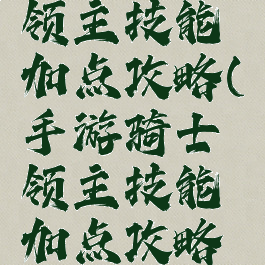 领主技能
加点攻略(
手游骑士
领主技能
加点攻略